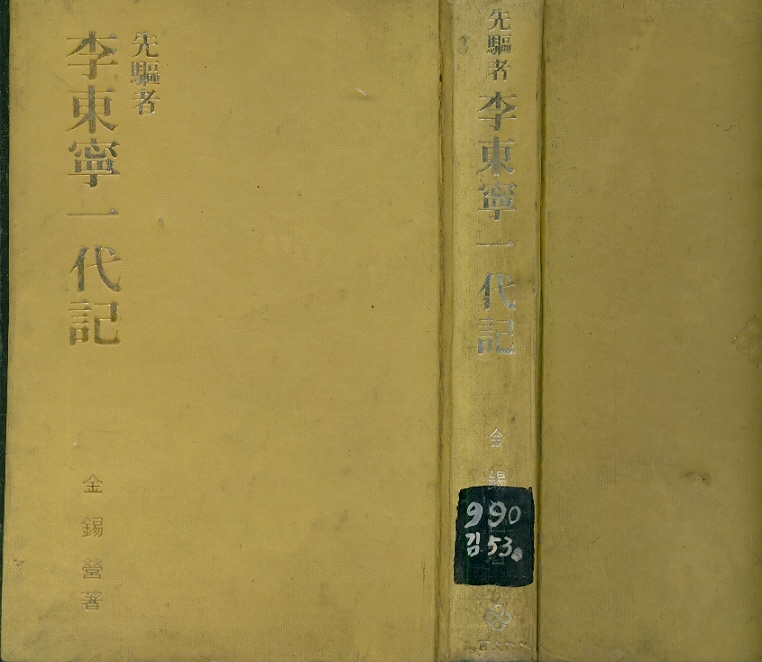 先驅者
李東寧一代記
金錫營著
先驅者
李東寧一代記
金錫
990
김53